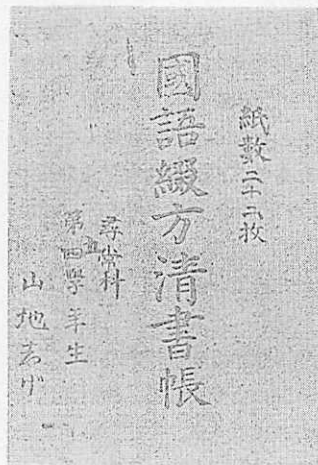 紙數二十二枚
國語綴方清書帳
尋常科
第四五學年生
山地志げ